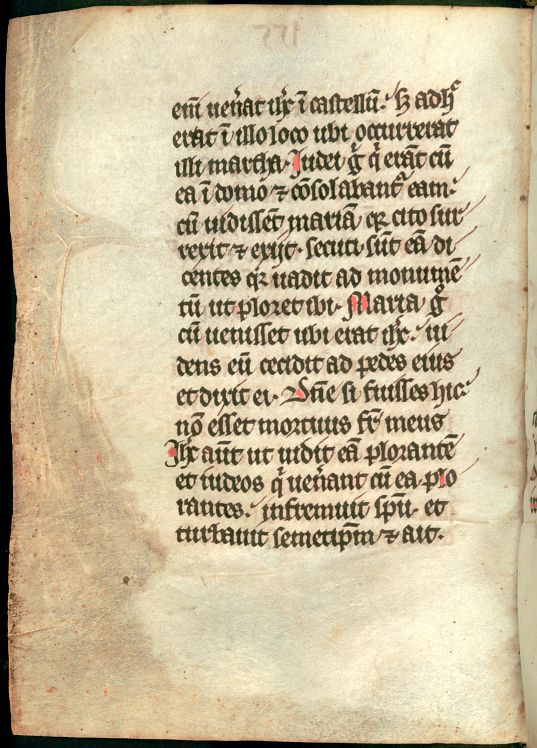 eni᷒ uen̄at ih̄c ī castellū. Sʒ adhᶜ
erat ī illo loco ubi occurrerat
illi martha. Iudei g̊ q̄ erāt cū
ea ī domo ⁊ cōsolabant᷑ eam.
cū uidissēt mariā qꝛ cito sur
rexit ⁊ exijt. secuti sūt eā di
centes qꝛ uadit ad monumē
tū ut ploret ibi. Maria g̊
cū uenisset ubi erat ih̄c. ui
dens eū cecidit ad pedes eius
et dixit ei. Dn̄e si fuisses hic.
nō esset mortuus fr̄ meus
Ih̄c aūt ut uidit eā plorantē
et iudeos q̄ uen̄ant cū ea plo
rantes. infremuit sp̄u. et
turbauit semetip̄m ⁊ ait.